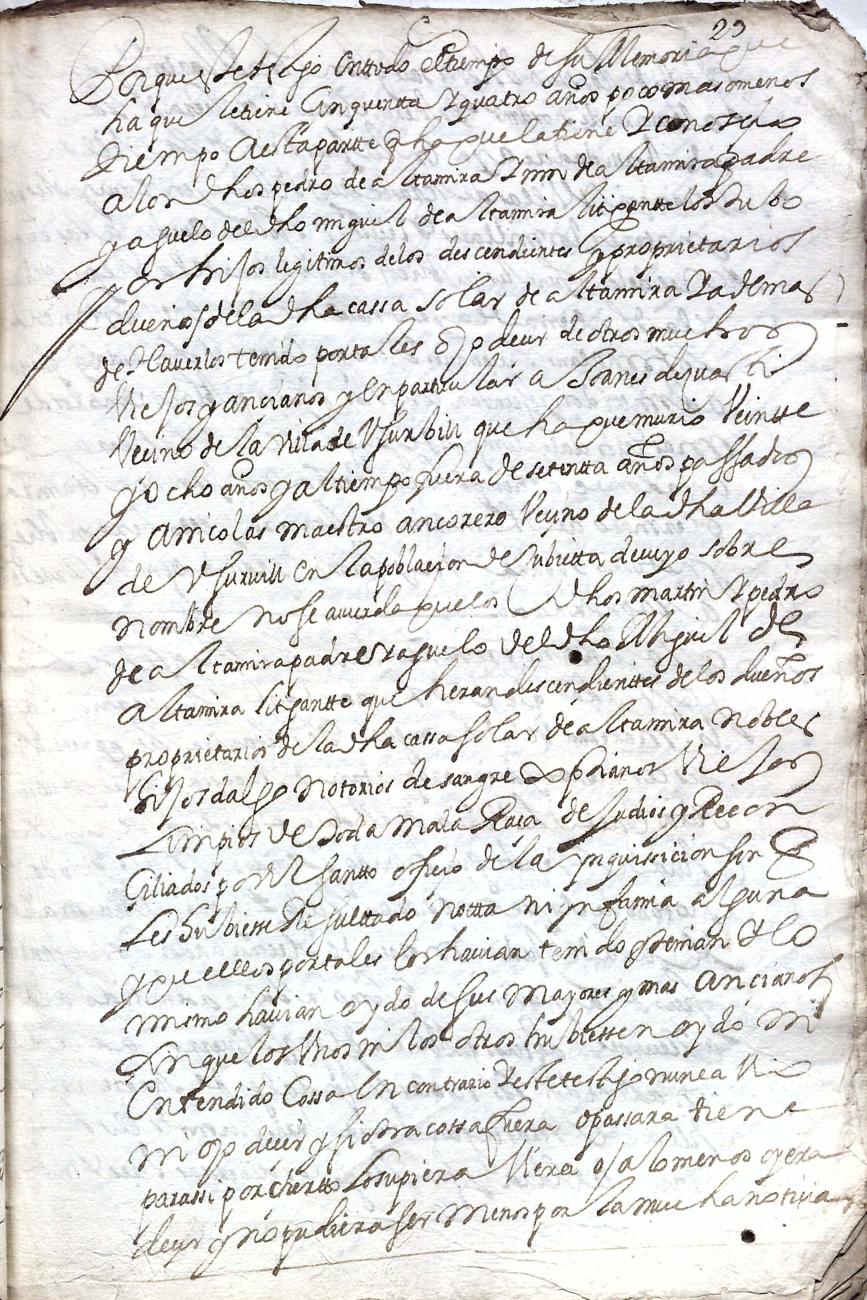 23
Porque este tgo en todo el tiempo de su Memoria que
ha que le tiene Cinquentta y quatro años poco mas o menos
tiempo a esta partte q ha que la tiene y conoscio
a los dhos pedro de altamira y mrn de altamira padre
y aguelo del dho miguel de altamira litigantte los tubo
por hijos legitimos de los descendientes y proprietarios
dueños de la dha cassa solar de altamira y a demas
de Haverlos tenido por tales oyo decir de otros muchos
Viejos y ancianos y en particular a Joanes de
Vecino de la Villa de Vsurbill que ha que murio Veintte
y ocho años y al tiempo hera de setentta años passados
y a nicolas maestro ancorero Vecino de la dha Villa
de Vsurvill en la poblacion de Subietta de cuyo sobre
Nombre no se acuerda que los dhos martin y pedro
de altamira padre y aguelo del dho Miguel de
Altamira litigantte que heran descendienttes de los dueños
proprietarios de la dha cassa solar de altamira nobles
hijosdalgo notorios de sangre xpianos Viejos
Limpios de toda mala Raca de Judios y Recon
ciliados por el santto oficio de la ynquissicion sin q
Les hubiesse Resulttado notta ni ynfamia alguna
y que ellos por tales los havian tenido y tenian y lo
mismo havian oydo de sus mayores y mas ancianos
sin que los Vnos ni los otros hubiessen oydo ni
Entendido Cossa En contrario y este testigo nunca Vio
ni oyo decir y si otra cossa fuera o passara tiene
para ssi por cierto Lo supiera Viera o a lo menos oyera
decir y no pudiera ser menos por la mucha noticia